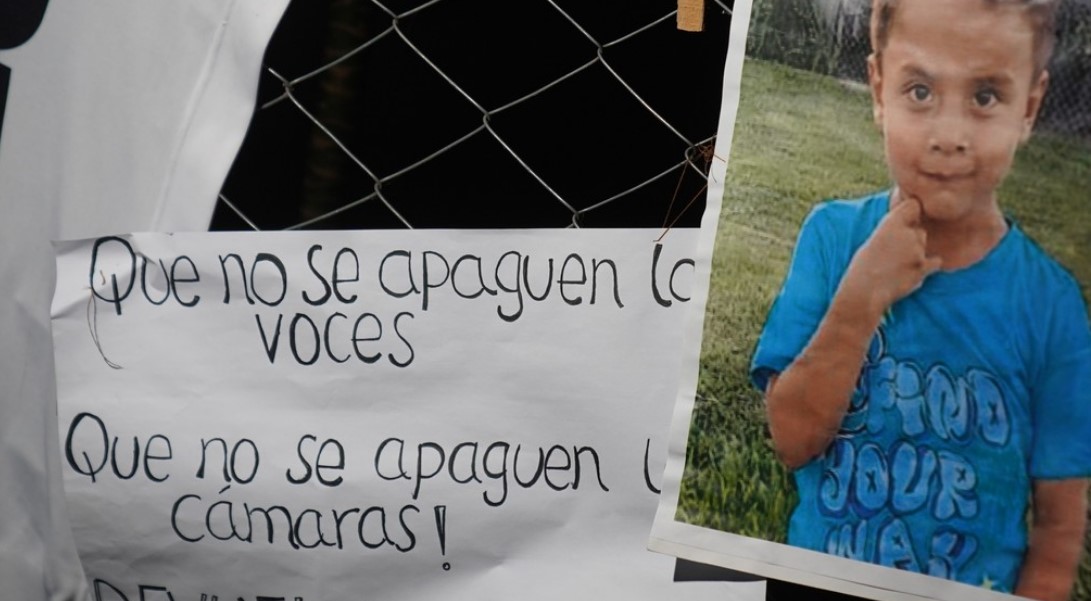 Que no se apaguen
voces
Que no se apaguen
cámaras!
FIND
YOUR
WAY